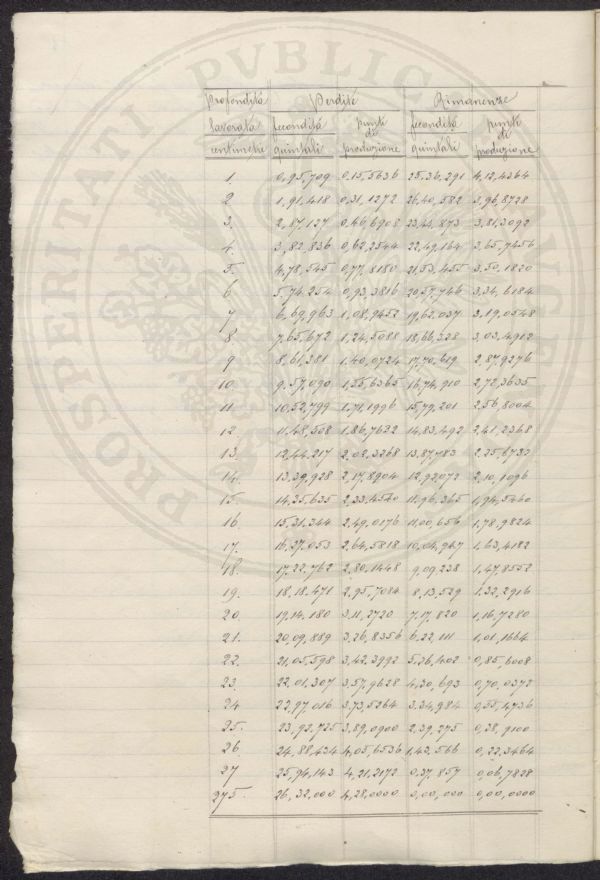 PROSPERITATI PVBLICAE
Profondità Perdite Rimanenze
lavorata fecondità punti fecondità punti
di di
centimetri quintali produzione quintali produzione
1. 0,95,709 0,15,5636 25,36,291 4,12,4364
2 1,91,418 0,31,1272 24,40,582 3,96,8728
3. 2,87,127 0,46,6908 23,44,873 3,81,3092
4. 3,82,836 0,62,2544 22,49,164 3,65,7456
5. 4,78,545 0,77,8180 21,53,455 3,50,1820
6. 5,74,254 0,93,3816 20,57,746 3,34,6184
7 6,69,963 1,08,9452 19,62,037 3,19,0548
8 7,65,672 1,24,5088 18,66,328 3,03,4912
9 8,61,381 1,40,0724 17,70,619 2,87,9276
10. 9,57,090 1,55,6365 16,74,910 2,72,3635
11. 10,52,799 1,71,1996 15,79,201 2,56,8004
12. 11,48,508 1,86,7632 14,83,492 2,41,2368
13. 12,44,217 2,02,3268 13,87,783 2,25,6732
14. 13,39,928 2,17,8904 12,92,072 2,10,1096
15. 14,35,635 2,33,4540 11,96,365 1,94,5460
16. 15,31,344 2,49,0176 11,00,656 1,78,9824
17. 16,27,053 2,64,5818 10,04,947 1,63,4182
18. 17,22,762 2,80,1448 9,09,238 1,47,8552
19. 18,18,471 2,95,7084 8,13,529 1,32,2916
20. 19,14,180 3,11,2720 7,17,820 1,16,7280
21. 20,09,889 3,26,8356 6,22,111 1,01,1644
22. 21,05,598 3,42,3992 5,26,402 0,85,6008
23. 22,01,307 3,57,9628 4,30,693 0,70,0372
24 22,97,016 3,73,5264 3,34,984 0,54,4736
25. 23,92,725 3,89,0900 2,39,275 0,38,9100
26 24,88,434 4,05,6536 1,43,566 0,22,3464
27 25,94,143 4,21,2172 0,37,857 0,06,7828
275. 26,32,000 4,28,0000 0,00,000 0,00,0000